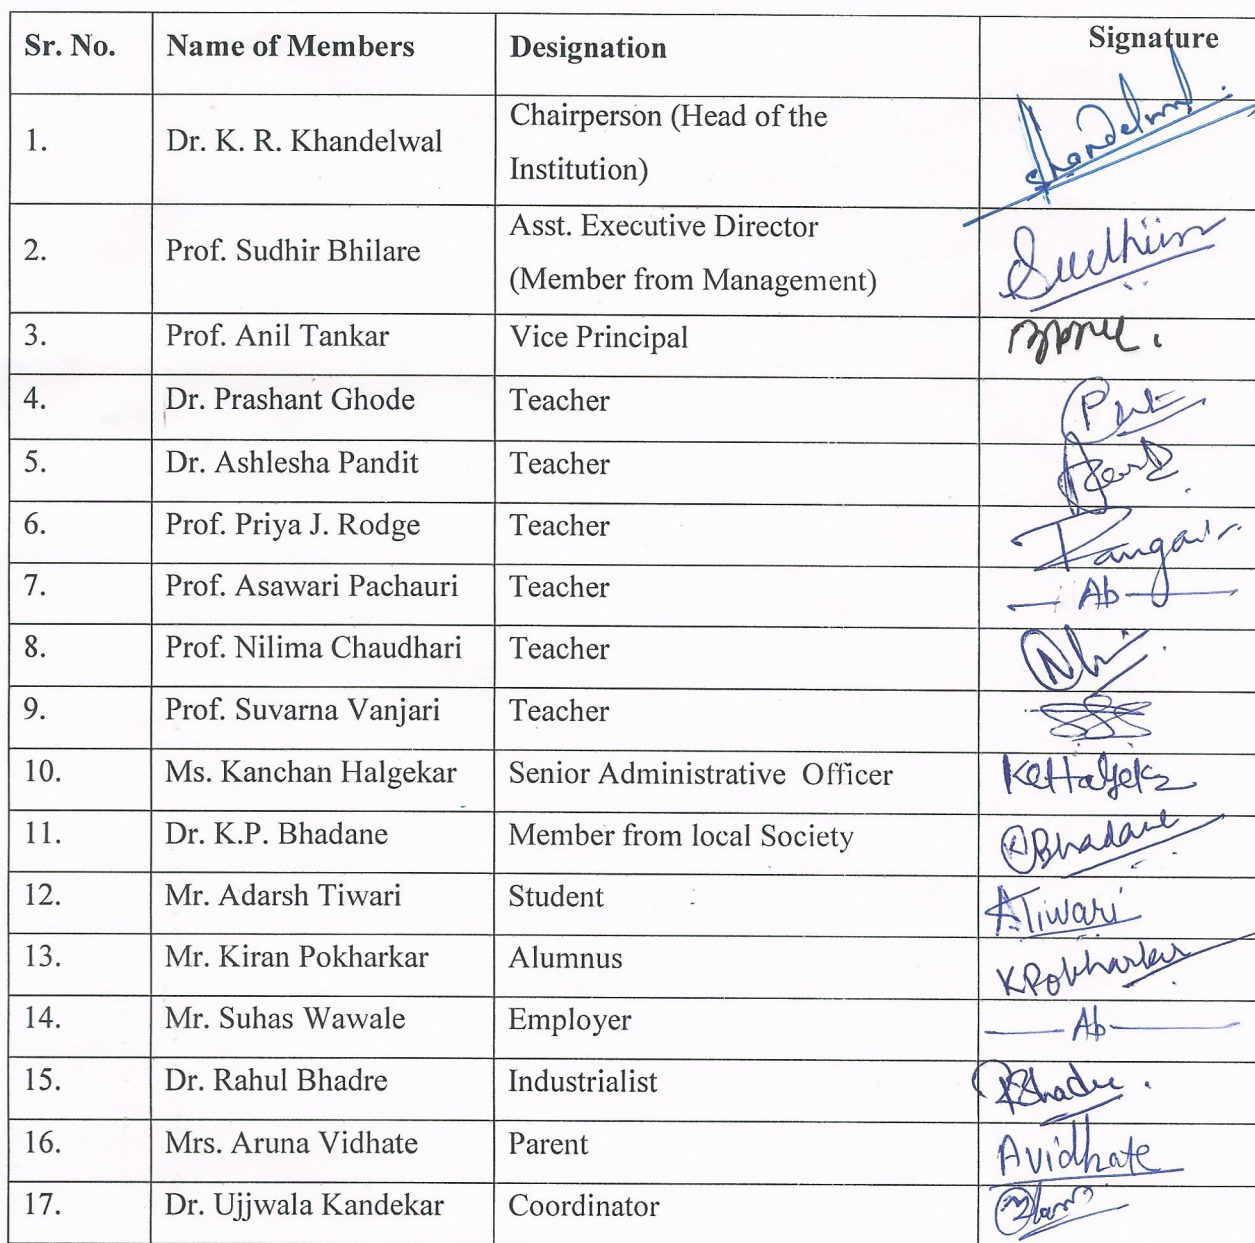 Sr. No. Name of Members Designation Signature
1. Dr. K. R. Khandelwal Chairperson (Head of the
Institution) Khandelwal
2. Prof. Sudhir Bhilare Asst. Executive Director
(Member from Management)
3. Prof. Anil Tankar Vice Principal
4. Dr. Prashant Ghode Teacher
5. Dr. Ashlesha Pandit Teacher
6. Prof. Priya J. Rodge Teacher
7. Prof. Asawari Pachauri Teacher — Ab —
8. Prof. Nilima Chaudhari Teacher
9. Prof. Suvarna Vanjari Teacher
10. Ms. Kanchan Halgekar Senior Administrative Officer
11. Dr. K.P. Bhadane Member from local Society Bhadane
12. Mr. Adarsh Tiwari Student ATiwari
13. Mr. Kiran Pokharkar Alumnus KPokharkar
14. Mr. Suhas Wawale Employer — Ab —
15. Dr. Rahul Bhadre Industrialist RBhadre.
16. Mrs. Aruna Vidhate Parent Avidhate
17. Dr. Ujjwala Kandekar Coordinator